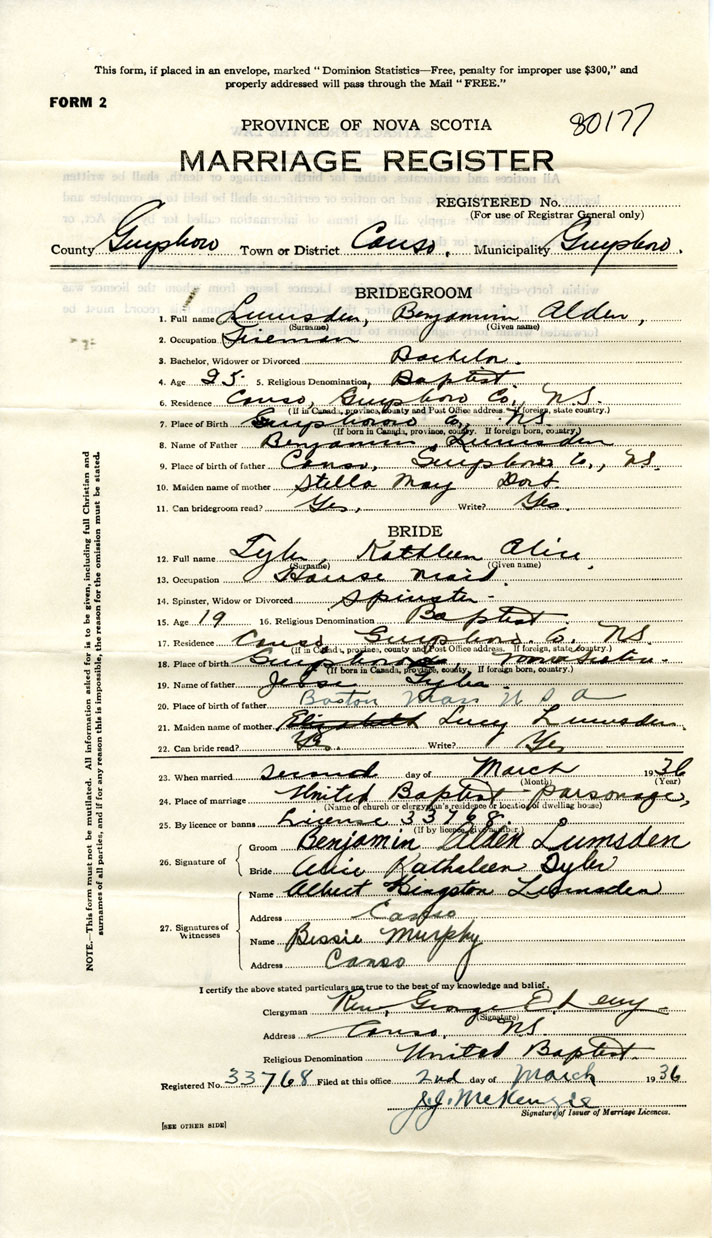 This form, if placed in an envelope, marked "Dominion Statistics—Free, penalty for improper use $300," and
properly addressed will pass through the Mail "FREE."
FORM 2
80177
PROVINCE OF NOVA SCOTIA
MARRIAGE REGISTER
REGISTERED No.
(For use of Registrar General only)
County Guysboro Town or District Canso, Municipality Guysboro.
BRIDEGROOM
1. Full name Lumsden, Benjamin Alden,
(Surname) (Given name)
2. Occupation Fireman
3. Bachelor, Widower or Divorced Bachelor.
4. Age 25. 5. Religious Denomination, Baptist
6. Residence Canso, Guysboro Co., N.S.
(If in Canada, province, county and Post Office address. If foreign, state country.)
7. Place of Birth Guysboro Co., N.S.
(If born in Canada, province, county. If foreign born, country.)
8. Name of Father Benjamin Lumsden
9. Place of birth of father Canso, Guysboro Co., N.S.
10. Maiden name of mother Stella May Dort
11. Can bridegroom read? Yes. Write? Yes.
BRIDE
12. Full name Tyler, Kathleen Alice,
(Surname) (Given name)
13. Occupation House maid.
14. Spinster, Widow or Divorced Spinster.
15. Age 19 16. Religious Denomination Baptist
17. Residence Canso, Guysboro Co. N.S.
(If in Canada, province, county and Post Office address. If foreign, state country.)
18. Place of birth Guysboro Nova Scotia.
(If born in Canada, province, county. If foreign born, country.)
19. Name of father Jesse Tyler
20. Place of birth of father Boston Mass U S A
21. Maiden name of mother Elizabeth Lucy Lumsden.
22. Can bride read? Yes. Write? Yes
23. When married second day of March 1936
(Month) (Year)
24. Place of marriage United Baptist Parsonage,
(Name of church or clergyman's residence or location of dwelling house)
25. By licence or banns License 33768.
(If by licence give number.)
26. Signature of
Groom Benjamin Alden Lumsden
Bride Alice Kathaleen Tyler
27. Signatures of Witnesses
Name Albert Kingston Lumsden
Address Canso
Name Bessie Murphy
Address Canso
I certify the above stated particulars are true to the best of my knowledge and belief.
Clergyman Rev. George E. Levy
(Signature)
Address Canso, N.S.
Religious Denomination United Baptist.
Registered No. 33768 Filed at this office 2nd day of March 1936
J.J. McKenzie
Signature of Issuer of Marriage Licences.
[SEE OTHER SIDE]
NOTE.—This form must not be mutilated. All information asked for is to be given, including full Christian and
surnames of all parties, and if for any reason this is impossible, the reason for the omission must be stated.